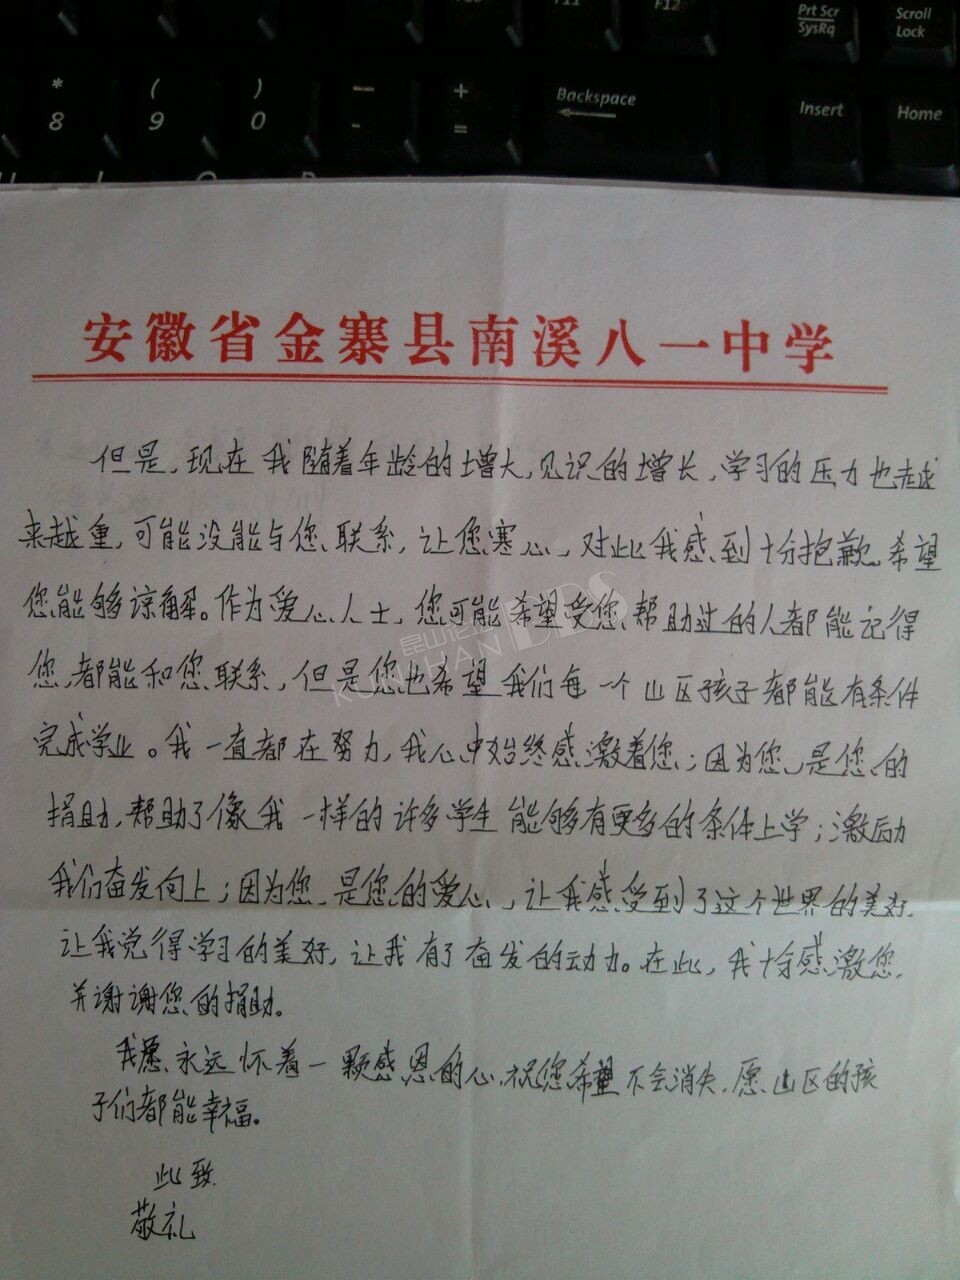 F10 F11 F12 Prt Scr Scroll
SysRq Lock
* ( ) — + Backspace Insert Home
8 9 0 - =
安徽省金寨县南溪八一中学
但是,现在我随着年龄的增大,见识的增长,学习的压力也越
来越重,可能没能与您联系,让您寒心,对此我感到十分抱歉。希望
您能够谅解。作为爱心人士,您可能希望受您帮助过的人都能记得
您,都能和您联系,但是您也希望我们每一个山区孩子都能有条件
完成学业。我一直都在努力,我心中始终感激着您;因为您,是您的
捐助,帮助了像我一样的许多学生能够有更多的条件上学;激励
我们奋发向上;因为您,是您的爱心,让我感受到了这个世界的美好,
让我觉得学习的美好,让我有了奋发的动力。在此,我十分感激您,
并谢谢您的捐助。
我愿永远怀着一颗感恩的心,祝您希望不会消失,愿山区的孩
子们都能幸福。
此致
敬礼
昆山论坛
KUNSHAN BBS